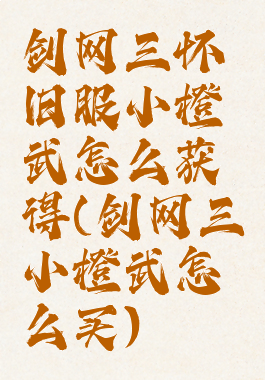 剑网三怀
旧服小橙
武怎么获
得(剑网三
小橙武怎
么买)